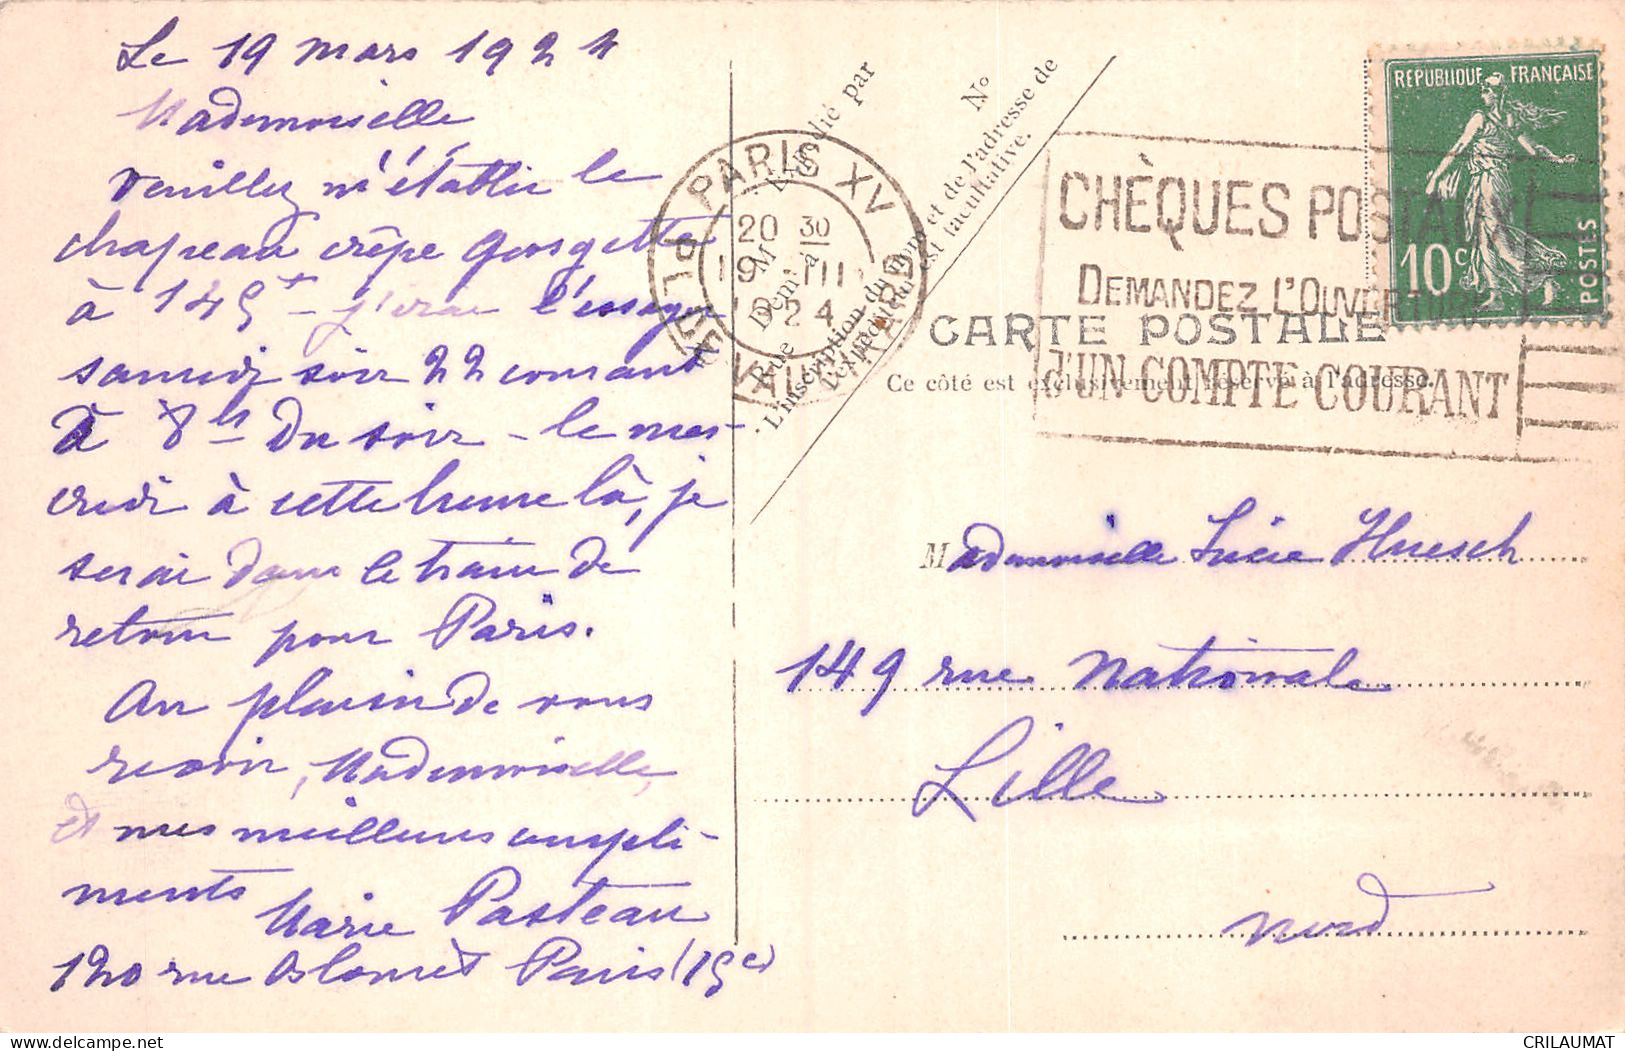 Le 19 mars 1924
Mademoiselle
Veuillez m'établir le
chapeau crêpe georgette
à 145 f - j'irai l'essayer
samedi soir 22 courant
à 8 hs du soir - le mer-
credi à cette heure là, je
serai dans le train de
retour pour Paris.
Au plaisir de vous
revoir, Mademoiselle,
et mes meilleurs compli-
ments
Marie Pasteau
120 rue Paris (15e)
PARIS XV
20 30
19 III
24
Expédié par
M
Demt à
Rue
No
L'inscription du nom et de l'adresse de
l'expéditeur est facultative.
CHÈQUES POSTAUX
DEMANDEZ L'OUVERTURE
D'UN COMPTE COURANT
REPUBLIQUE FRANÇAISE
10c
POSTES
CARTE POSTALE
Ce côté est exclusivement réservé à l'adresse.
Mademoiselle Lucie Huesch
149 rue Nationale
Lille
Nord
CRILAUMAT